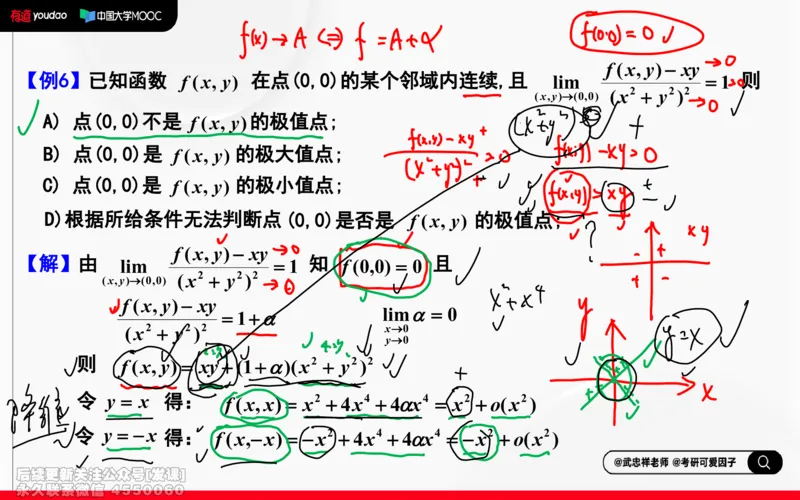 有道youdao 中国大学MOOC
f(x)→A ⇔ f=A+α
f(0,0)=0
【例6】已知函数 f(x,y) 在点(0,0)的某个邻域内连续,且 lim (x,y)→(0,0) f(x,y)−xy / (x²+y²)² = 1 则
→0
→0
A) 点(0,0)不是 f(x,y)的极值点;
B) 点(0,0)是 f(x,y) 的极大值点;
C) 点(0,0)是 f(x,y) 的极小值点;
D)根据所给条件无法判断点(0,0)是否是 f(x,y) 的极值点;
f(x,y)−xy / (x²+y²)² >0
f(x,y)−xy>0
f(x,y)>xy
?
xy
+
−
+
−
【解】由 lim (x,y)→(0,0) f(x,y)−xy / (x²+y²)² = 1 知 f(0,0)=0 且
→0
→0
f(x,y)−xy / (x²+y²)² = 1+α lim x→0 y→0 α = 0
x²+x⁴
y
x
y=x
则 f(x,y) = xy+(1+α)(x²+y²)²
令 y=x 得: f(x,x) = x²+4x⁴+4αx⁴ = x²+o(x²)
令 y=−x 得: f(x,−x) = −x²+4x⁴+4αx⁴ = −x²+o(x²)
@武忠祥老师 @考研可爱因子
后续更新关注公众号[发课]
永久联系微信 4550060